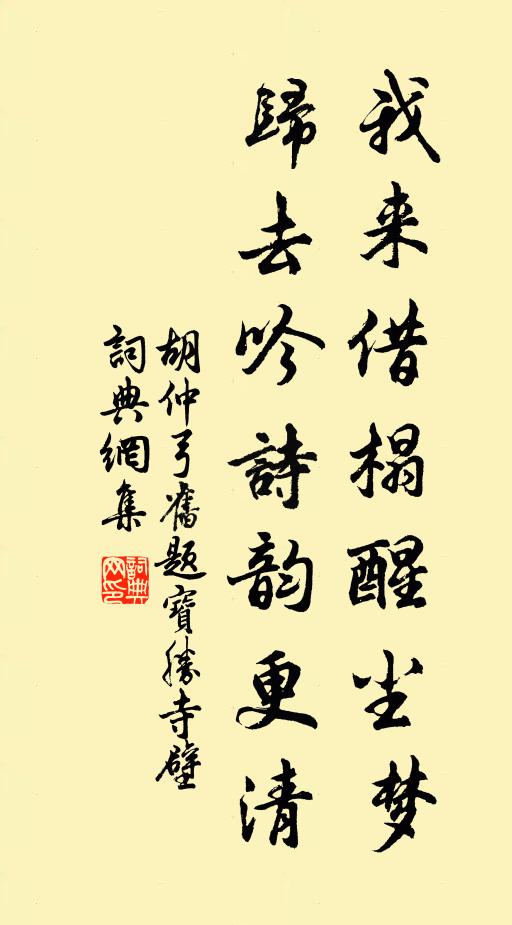 我来借榻醒尘梦
歸去吟詩韵更清
胡仲弓舊题寶勝寺壁
詞典網集
詞典网印